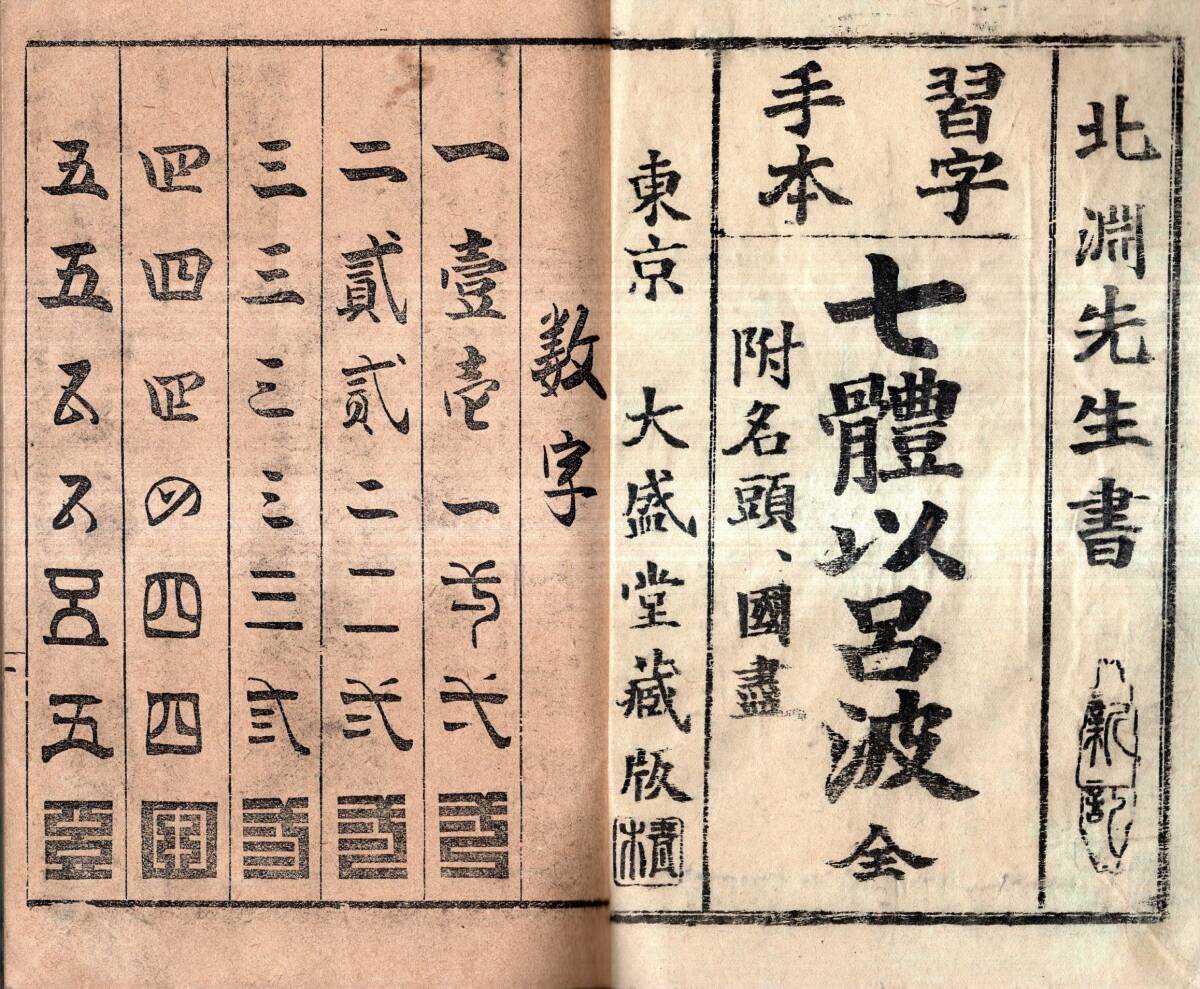 北淵先生書
習字
手本
七體以呂波 全
附名頭、國盡
東京 大盛堂藏版
数字
一壹壱一弌
二貳貮二二弍
三三三三三弎
四四四四四四
五五五五五五